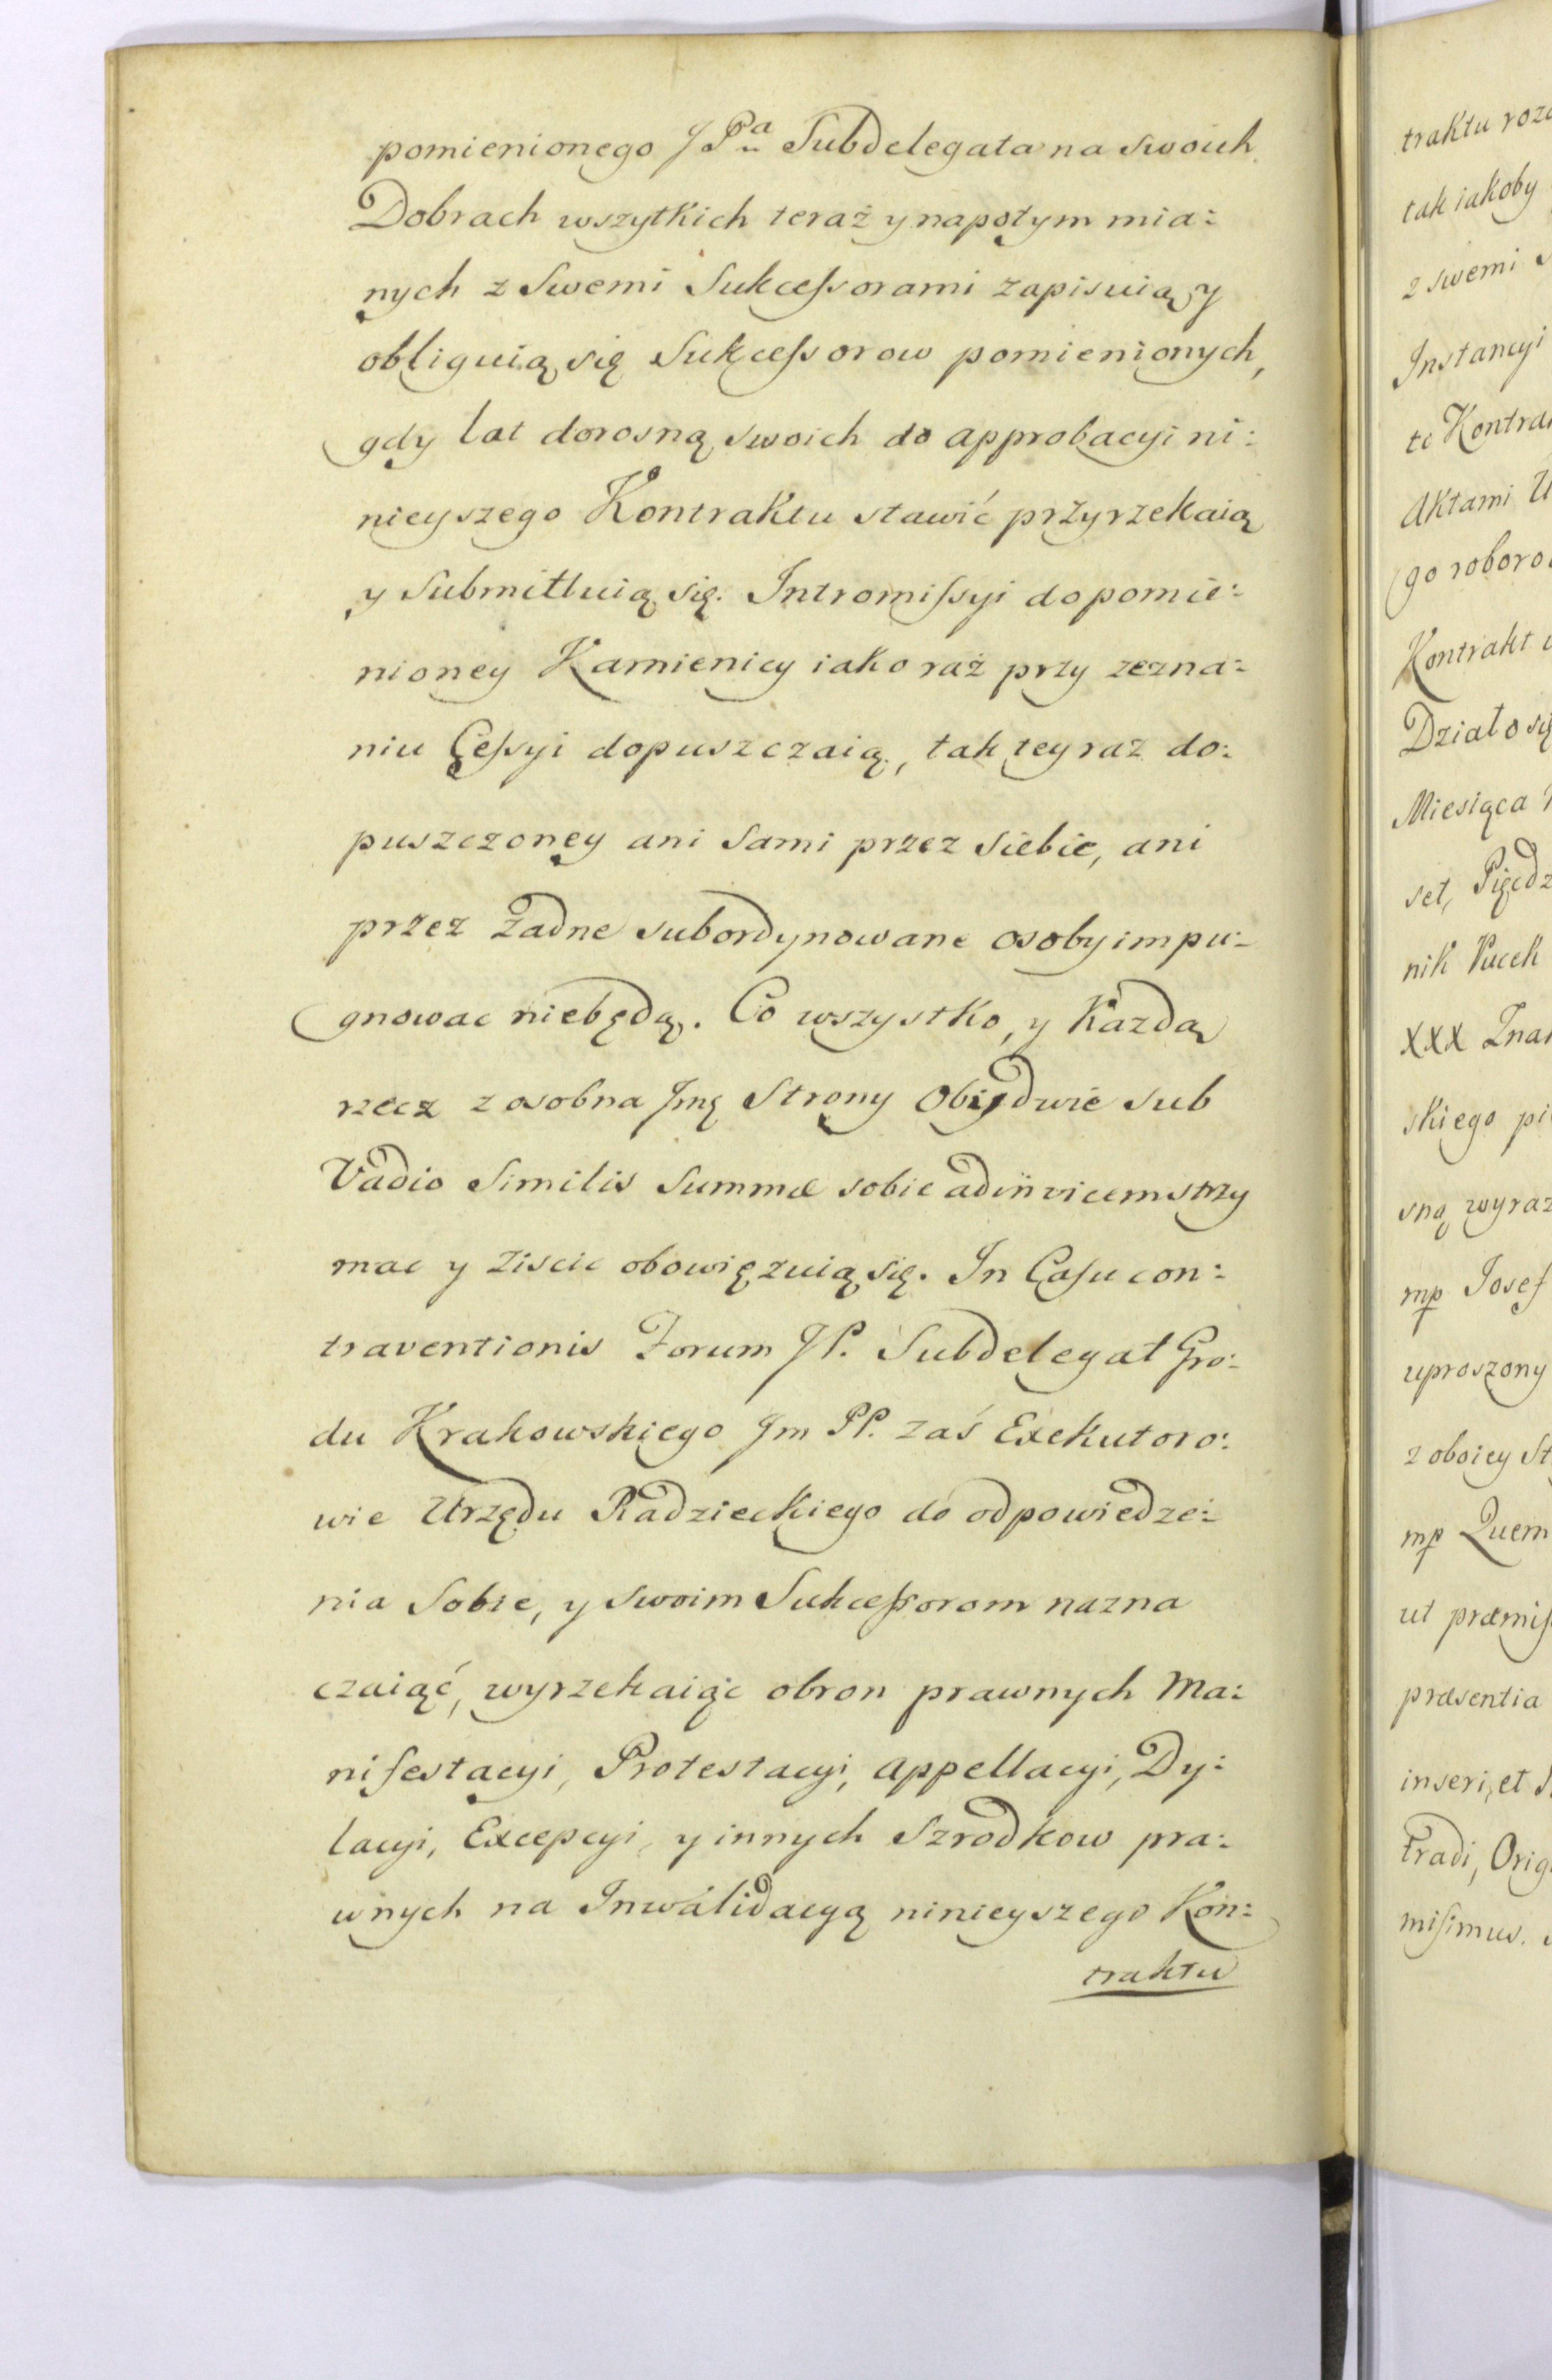 pomienionego J Pa Subdelegata na swoich
Dobrach wszytkich teraż y napotym mia:
nych z Swemi Sukcessorami zapisuią y
obliguią się Sukcessorow pomienionych,
gdy lat dorosną swoich do approbacyi ni:
nieyszego Kontraktu stawić przyrzekaią
y Submittuią się. Intromissyi do pomie:
nioney Kamienicy iako raż przy zezna:
niu Cessyi dopuszczaią, tak tey raz do:
puszczoney ani Sami przez Siebie, ani
przez Zadne subordynowane osoby impu:
gnowac niebędą. Co wszystko, y Kazdą
rzecz z osobna Jmę Strony Obiedwie Sub
Vadio Similis Summæ sobie adinvicem strzy
mac y Ziscic obowięzuią się. In Casu con:
traventionis Forum JP. Subdelegat Gro:
du Krakowskiego Jm PP. zaś Exekutoro:
wie Urzędu Radzieckiego do odpowiedze:
nia Sobie, y swoim Sukcessorom nazna
czaiąć, wyrzekaiąc obron prawnych Ma:
nifestacyi, Protestacyi, Appellacyi, Dy:
lacyi, Excepcyi, y innych Szrodkow pra:
wnych na Inwalidacyą ninieyszego Kon:
traktu
traktu
tak iakoby
z swemi
Instancyi
te
Aktami
go
Kontrakt
Działo się
Miesiąca
set,
nik Pucek
XXX
skiego
sną
mp Josef
uproszony
z oboiey
mp Quem
ut
præsentia
inseri, et
tradi,
misimus.